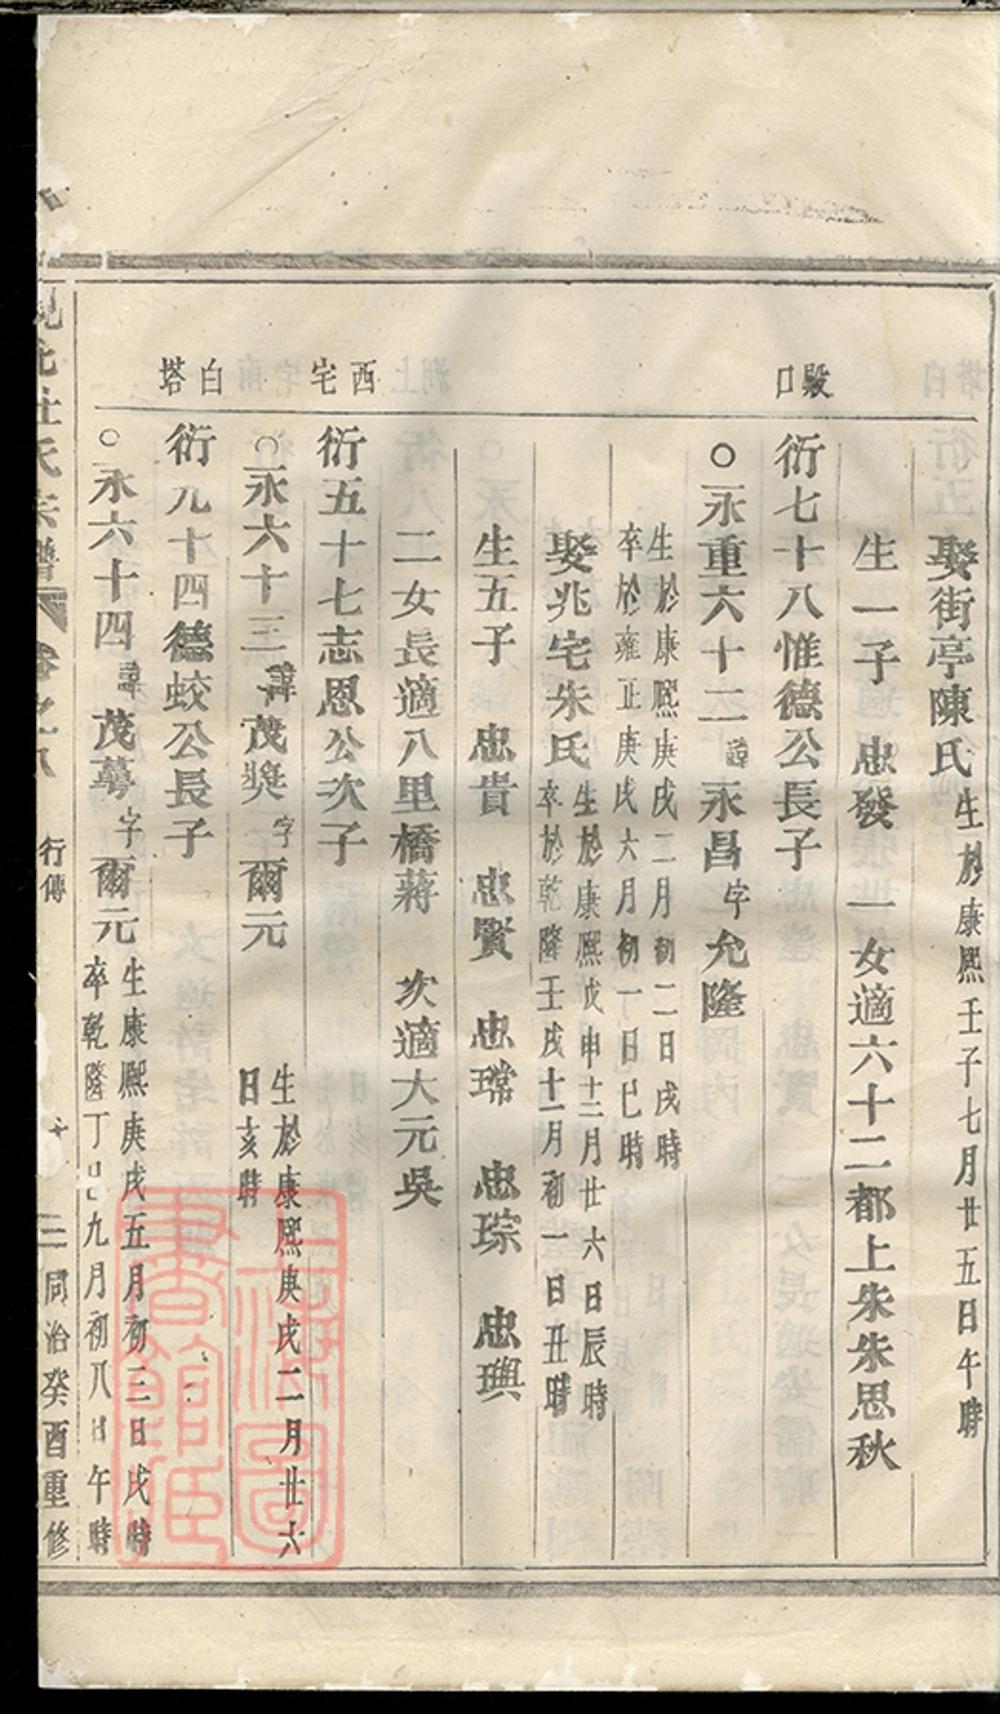 娶街亭陳氏
生於康熙壬子七月廿五日午時
生一子　忠發　一女適六十二都上朱朱思秋
殿口
衍七十八惟德公長子
○永重六十二諱永昌字允隆
生於康熙庚戌二月初二日戌時
卒於雍正庚戌六月初一日巳時
娶兆宅朱氏
生於康熙戊申十二月廿六日辰時
卒於乾隆壬戌十一月初一日丑時
生五子　忠貴　忠賢　忠瑺　忠琮　忠璵
二女長適八里橋蔣　次適大元吳
西宅
衍五十七志恩公次子
○永六十三諱茂獎字爾元
生於康熙庚戌二月廿六
日亥時
白塔
衍九十四德蛟公長子
○永六十四諱茂蕚字爾元
生康熙庚戌五月初三日戌時
卒乾隆丁巳九月初八日午時
杜氏宗譜　卷之八　行傳　三　同治癸酉重修